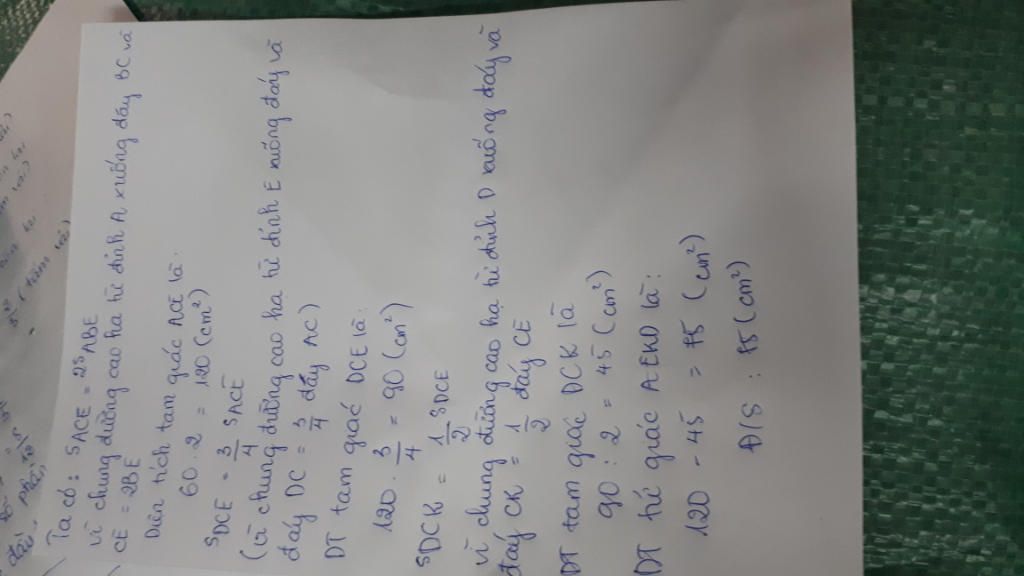 Ta có: SACE = 2SABE
vì chung đường cao hạ từ đỉnh A xuống đáy BC và
CE = 2BE
Diện tích tam giác ACE là:
60 . 2 = 120 (cm²)
SDCE = 3/4 SACE
(vì chung đường cao hạ từ đỉnh E xuống đáy và
đáy DC = 3/4 đáy AC)
DT tam giác DCE là:
120 . 3/4 = 90 (cm²)
SDCK = 1/2 SDCE
vì chung đường cao hạ từ đỉnh D xuống đáy và
đáy CK = 1/2 đáy CE
DT tam giác DCK là
90 : 2 = 45 (cm²)
DT tứ giác AEKD là:
120 - 45 = 75 (cm²)
Đ/S : 75 (cm²)